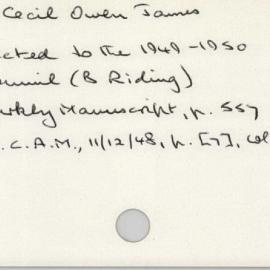 Cecil Owen James
cted to the 1949-1950
uncil (B Riding)
rkly Manuscript, p. 557
.C.A.M., 11/12/48, p. [7], col